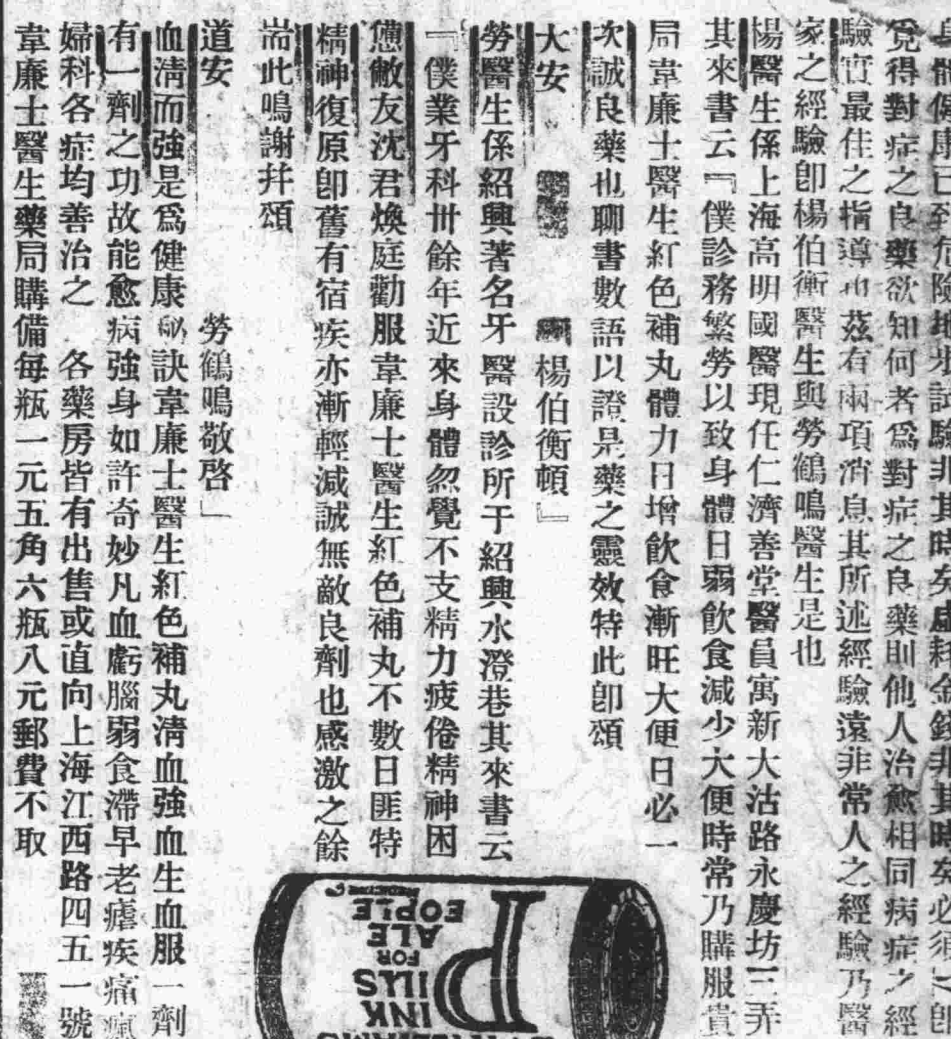 身體健康已到危險地步試驗非其時矣虛耗金錢非其時矣必須立卽
覓得對症之良藥欲知何者爲對症之良藥則他人治愈相同病症之經
驗實最佳之指導也茲有兩項消息其所述經驗遠非常人之經驗乃醫
家之經驗卽楊伯衡醫生與勞鶴鳴醫生是也
楊醫生係上海高明國醫現任仁濟善堂醫員寓新大沽路永慶坊三弄
其來書云『僕診務繁勞以致身體日弱飲食減少大便時常乃購服貴
局韋廉士醫生紅色補丸體力日增飲食漸旺大便日必一
次誠良藥也聊書數語以證是藥之靈效特此卽頌
大安 楊伯衡頓』
勞醫生係紹興著名牙醫設診所于紹興水澄巷其來書云
『僕業牙科卅餘年近來身體忽覺不支精力疲倦精神困
憊敝友沈君煥庭勸服韋廉士醫生紅色補丸不數日匪特
精神復原卽舊有宿疾亦漸輕減誠無敵良劑也感激之餘
耑此鳴謝幷頌
道安 勞鶴鳴敬啓」
血淸而強是爲健康祕訣韋廉士醫生紅色補丸淸血強血生血服一劑
有一劑之功故能愈病強身如許奇妙凡血虧腦弱食滯早老瘧疾痛瘋
婦科各症均善治之 各藥房皆有出售或直向上海江西路四五一號
韋廉士醫生藥局購備每瓶一元五角六瓶八元郵費不取
WILLIAMS
PINK
PILLS
FOR
PALE
PEOPLE
MEDICINE